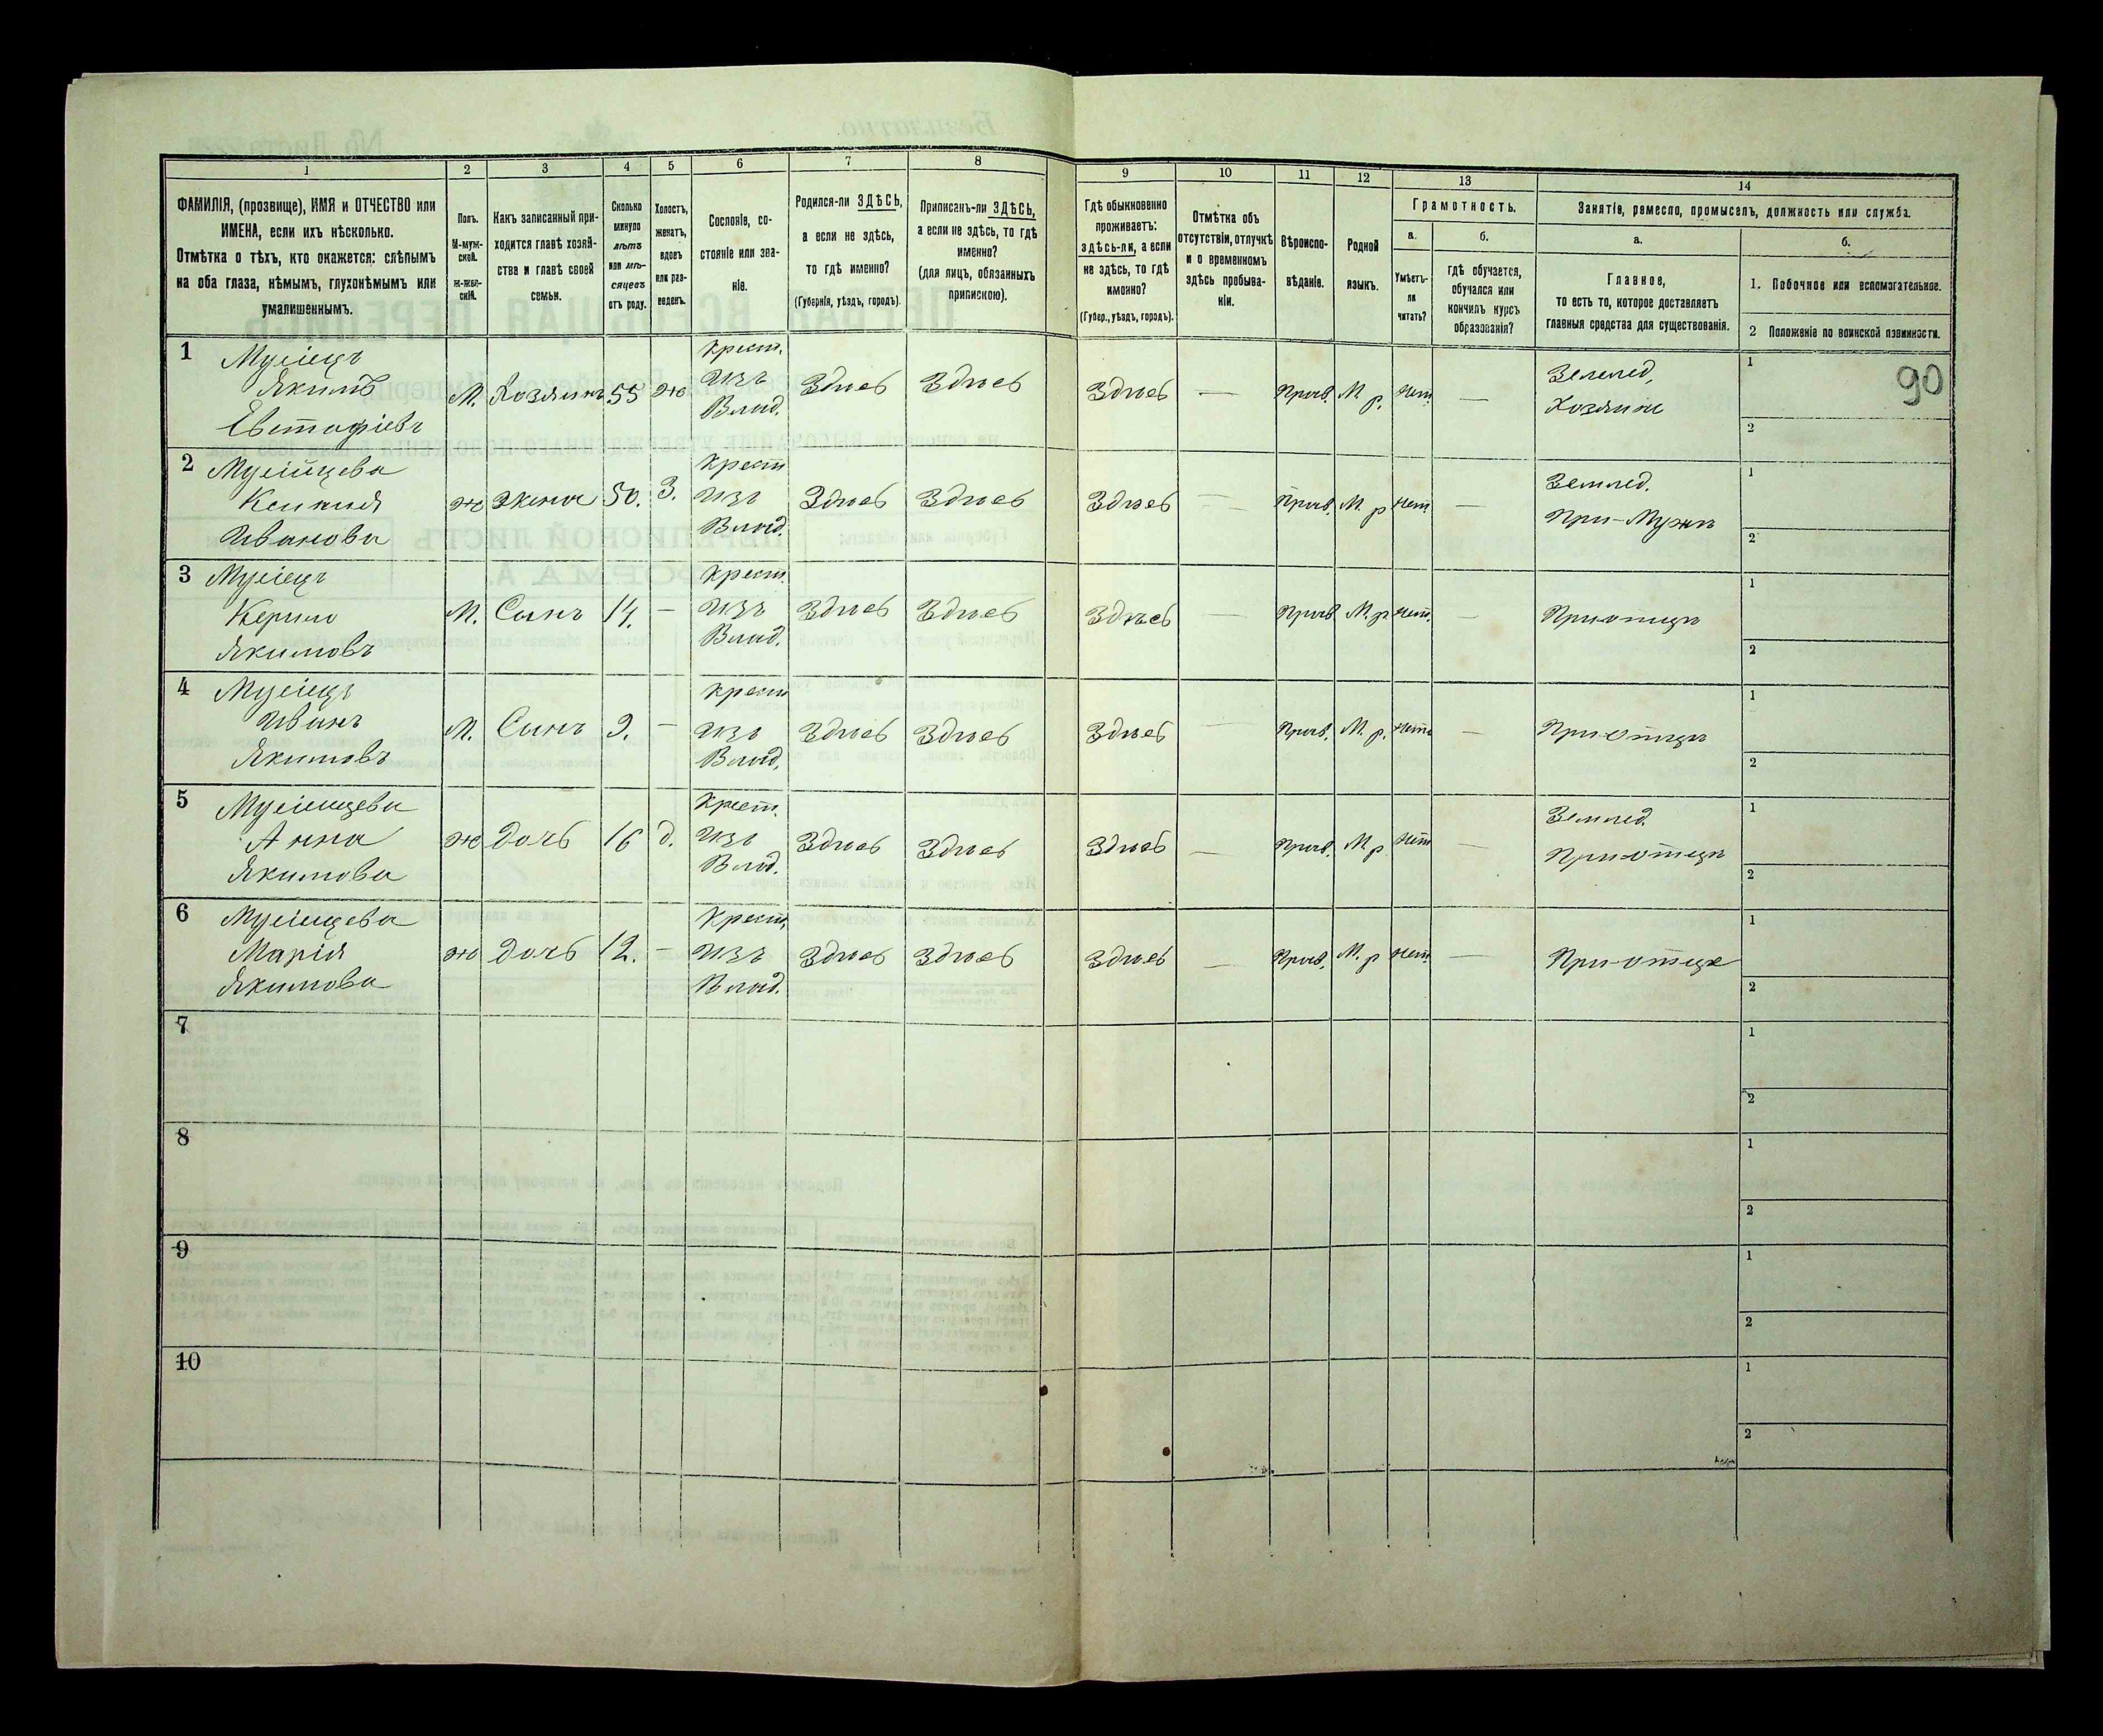 1
2
3
4
5
6
7
8
9
10
11
12
13
14
ФАМИЛІЯ, (прозвище), ИМЯ и ОТЧЕСТВО или
ИМЕНА, если ихъ нѣсколько.
Отмѣтка о тѣхъ, кто окажется: слѣпымъ
на оба глаза, нѣмымъ, глухонѣмымъ или
умалишеннымъ.
Полъ.
М-муж-
ской.
Ж-жен-
скій.
Какъ записанный при-
ходится главѣ хозяй-
ства и главѣ своей
семьи.
Сколько
минуло
лѣтъ
или мѣ-
сяцевъ
отъ роду.
Холостъ,
женатъ,
вдовъ
или раз-
веденъ.
Сословіе, со-
стояніе или зва-
ніе.
Родился-ли ЗДѢСЬ,
а если не здѣсь,
то гдѣ именно?
(Губернія, уѣздъ, городъ).
Приписанъ-ли ЗДѢСЬ,
а если не здѣсь, то гдѣ
именно?
(для лицъ, обязанныхъ
припискою).
Гдѣ обыкновенно
проживаетъ:
здѣсь-ли, а если
не здѣсь, то гдѣ
именно?
(Губер., уѣздъ, городъ).
Отмѣтка объ
отсутствіи, отлучкѣ
и о временномъ
здѣсь пребыва-
ніи.
Вѣроиспо-
вѣданіе.
Родной
языкъ.
Грамотность.
а.
Умѣетъ-
ли
читать?
б.
гдѣ обучается,
обучался или
кончилъ курсъ
образованія?
Занятіе, ремесло, промыселъ, должность или служба.
а.
Главное,
то есть то, которое доставляетъ
главныя средства для существованія.
б.
1. Побочное или вспомогательное.
2 Положеніе по воинской повинности.
90
1
Якимъ
Евстафіевъ
М. Хозяинъ 55 ж
Крест.
изъ
Влад.
Здѣсь Здѣсь Здѣсь — Прав. М. р. нет —
Землед,
Хозяин
1
2
2
Ксения
Иванова
ж жена 50. З.
Крест
изъ
Влад.
Здѣсь Здѣсь Здѣсь — Прав. М. р нет —
Землед.
При-Мужѣ
1
2
3
Якимовъ
М. Сынъ 14. —
Крест.
изъ
Влад.
Здѣсь Здѣсь Здѣсь — Прав М. р нет. —
При-отцѣ
1
2
4
Иванъ
Якимовъ
М. Сынъ 9. —
крест
изъ
Влад.
Здѣсь Здѣсь Здѣсь — Прав. М. р. нет —
При-отцѣ
1
2
5
Анна
Якимова
ж дочь 16 д.
Крест.
изъ
Влад.
Здѣсь Здѣсь Здѣсь — Прав. М р нет —
Землед.
При-отцѣ
1
2
6
Марія
Якимова
ж дочь 12. —
Крест,
изъ
Влад.
Здѣсь Здѣсь Здѣсь — Прав. М. р нет. —
При-отце
1
2
7
1
2
8
1
2
9
1
2
10
1
2